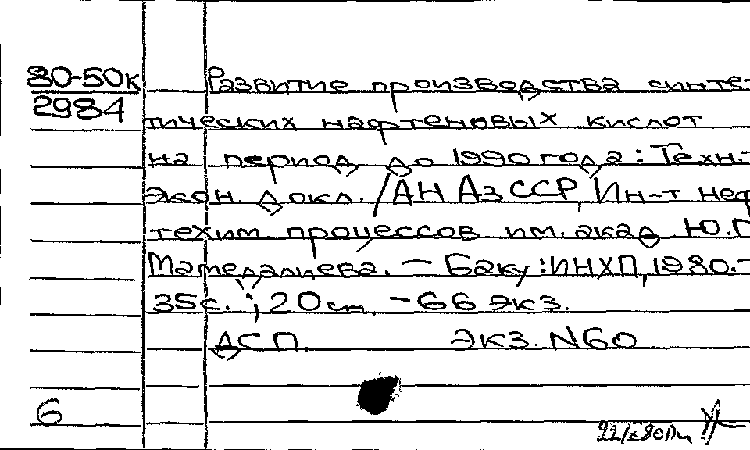 80-50к
2984
Развитие производства синте-
тических нафтеновых кислот
на период до 1990 года: Техн.-
экон. докл. /АН АзССР, Ин-т неф
техим. процессов им. акад. Ю.Г
Мамедалиева. — Баку: ИНХП, 1980.-
35с.; 20см. - 66 экз.
ДСП. Экз. N60
6